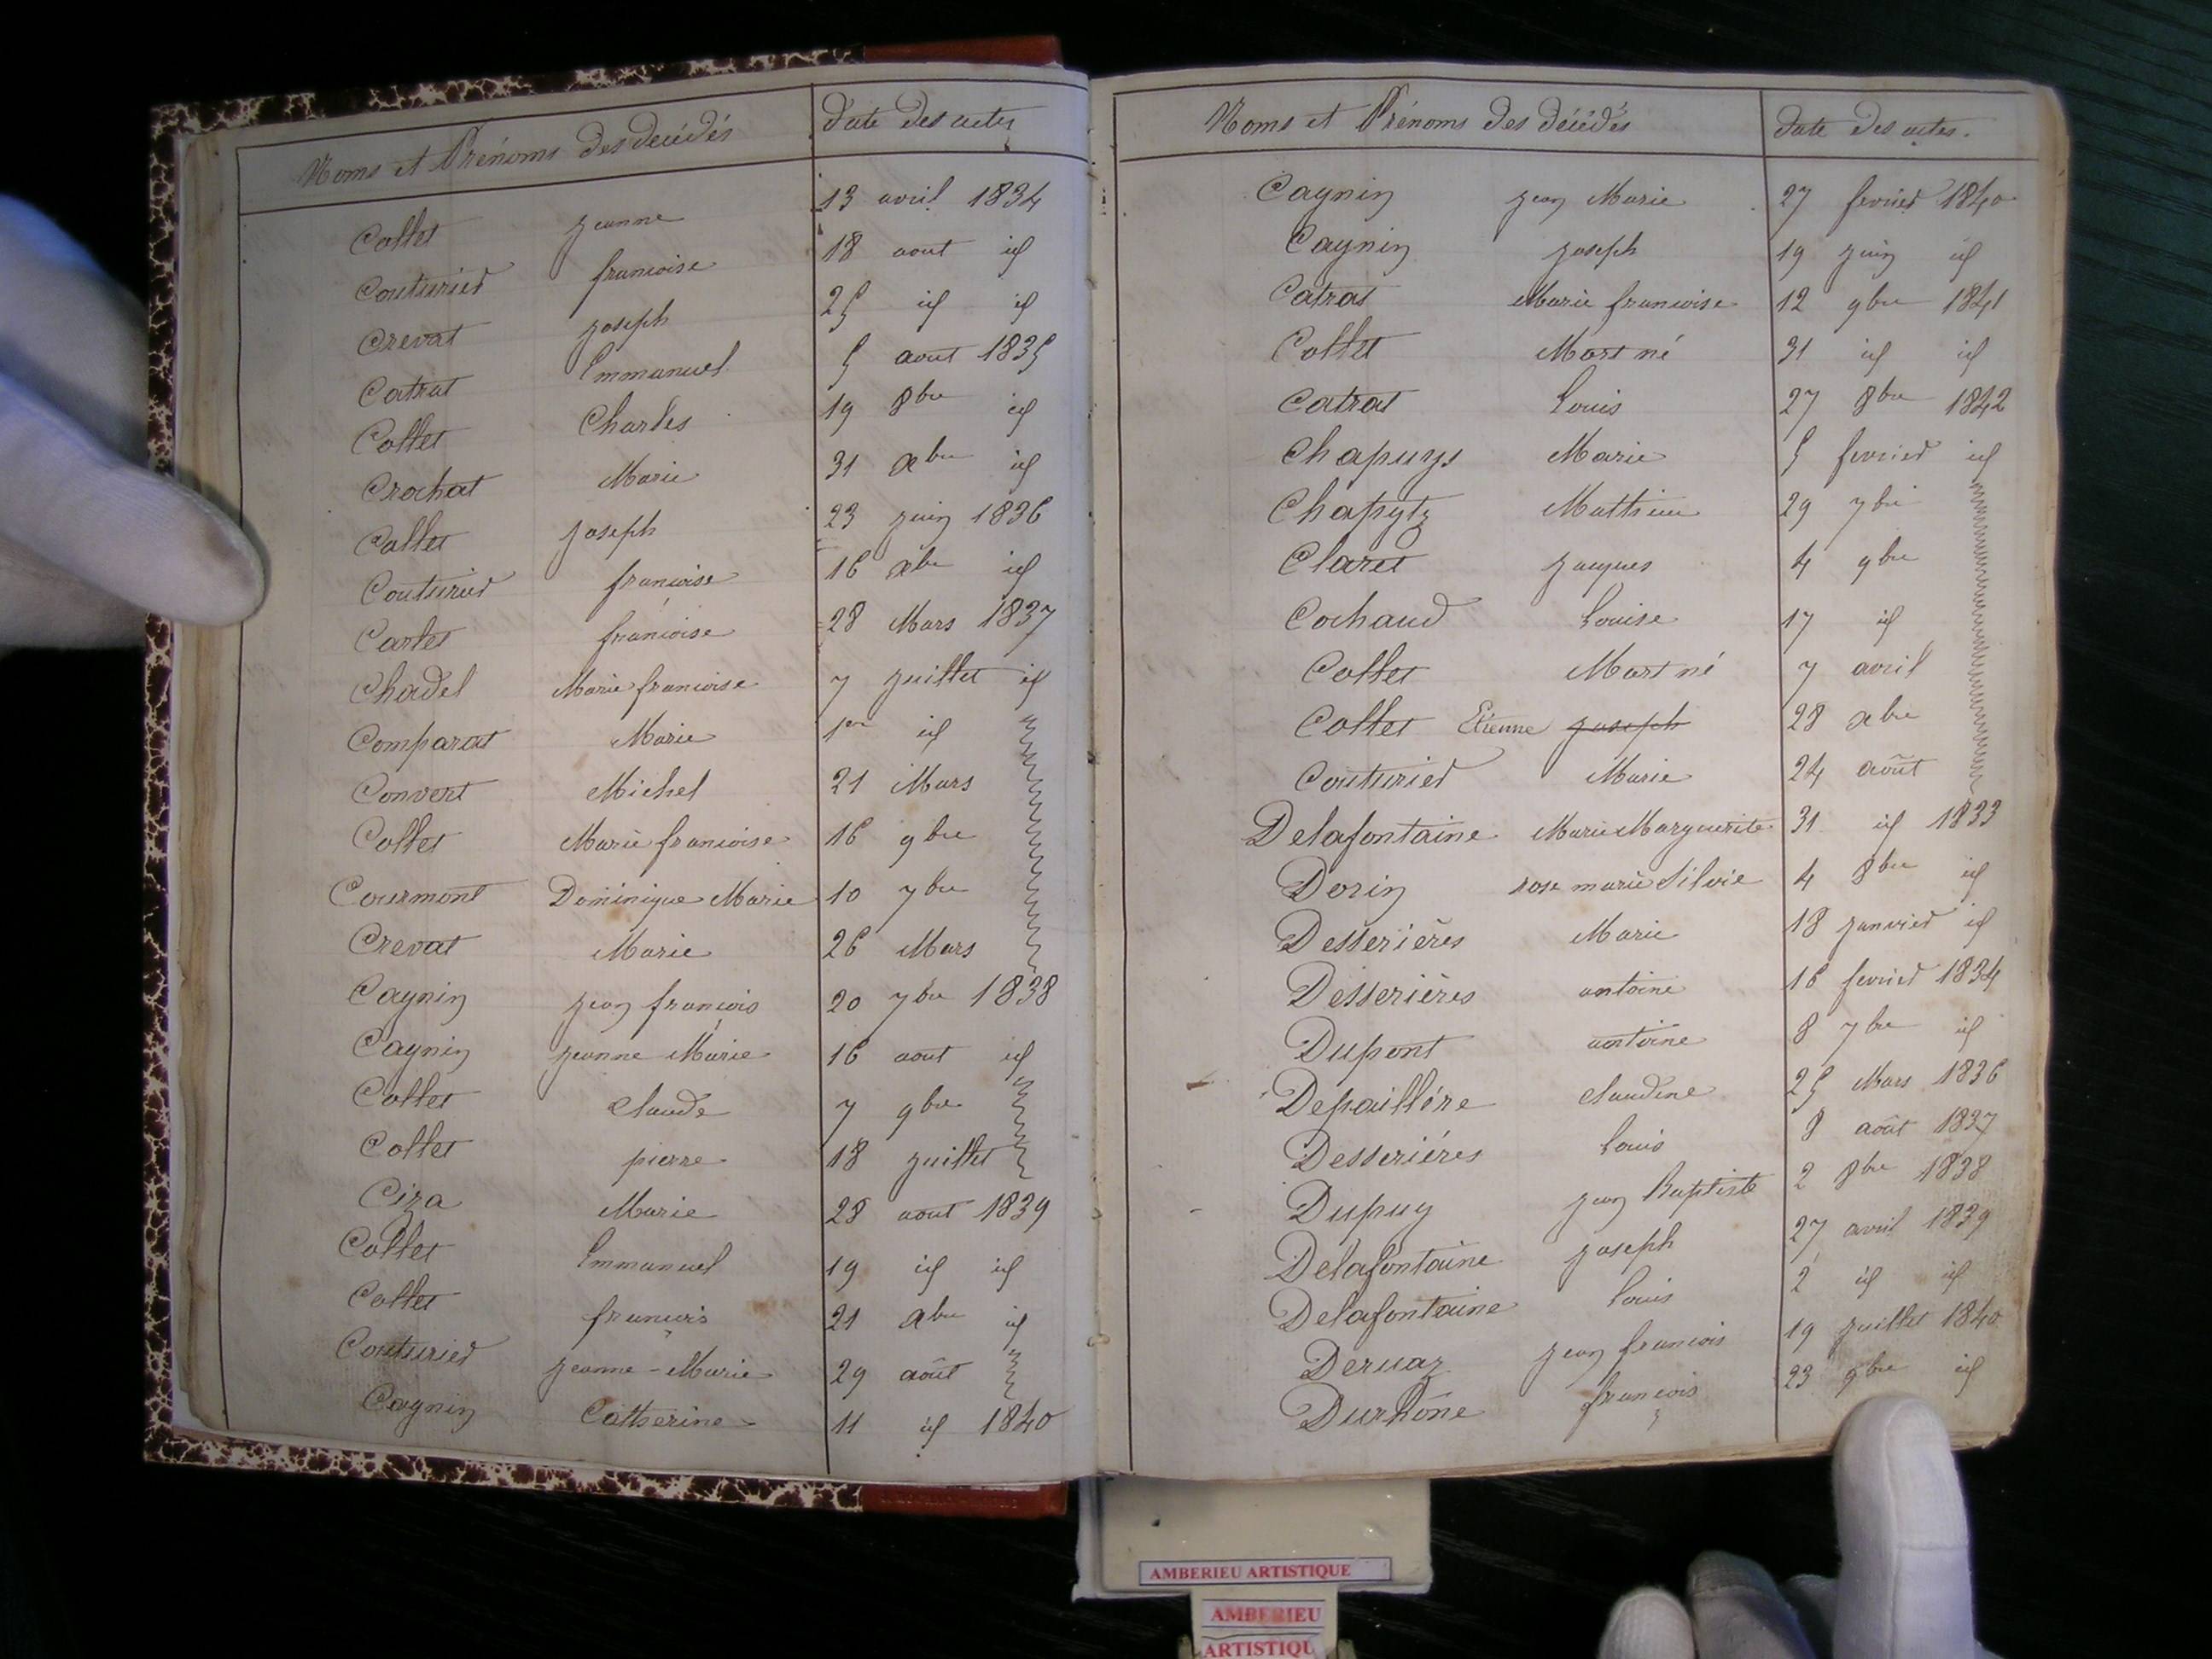 Noms et Prénoms des décédés date des actes
Collet jeanne 13 avril 1834
Couturier francoise 18 aout id
Crevat joseph 25 id id
Catrat Emmanuel 5 aout 1835
Collet Charles 19 8bre id
Crochat Marie 31 xbre id
Collet joseph 23 juin 1836
Couturier francoise 16 xbre id
Cartet francoise 28 Mars 1837
Chadel Marie francoise 7 juillet id
Comparat Marie 1er id
Convert Michel 21 Mars
Collet Marie francoise 16 9bre
Courmont Dominique Marie 10 7bre
Crevat Marie 26 Mars
Cagnin jean francois 20 7bre 1838
Cagnin jeanne Marie 16 aout id
Collet claude 7 9bre
Collet pierre 18 juillet
Ciza Marie 28 aout 1839
Collet Emmanuel 19 id id
Collet francois 21 xbre id
Couturier jeanne-Marie 29 août
Cagnin Catherine 11 id 1840
Noms et Prénoms des décédés date des actes.
Cagnin jean Marie 27 fevrier 1840
Cagnin joseph 19 juin id
Catrat Marie francoise 12 9bre 1841
Collet Mort né 31 id id
Catrat Louis 27 8bre 1842
Chapuys Marie 5 fevrier id
Chapytz Mathieu 29 7bre
Claret jacques 4 9bre
Cochaud Louise 17 id
Collet Mort né 7 avril
Collet Etienne joseph 28 xbre
Couturier Marie 24 août
Delafontaine Marie Marguerite 31 id 1833
Dorin rose marie Silvie 4 8bre id
Desserières Marie 18 janvier id
Desserières antoine 16 fevrier 1834
Dupont antoine 8 7bre id
Depaillére claudine 25 Mars 1836
Desseriéres Louis 8 août 1837
Dupuy jean Baptiste 2 8bre 1838
Delafontaine joseph 27 avril 1839
Delafontaine Louis 2 id id
Deruaz jean francois 19 juillet 1840
Durhône francois 23 9bre id
AMBERIEU ARTISTIQUE
AMBERIEU
ARTISTIQU